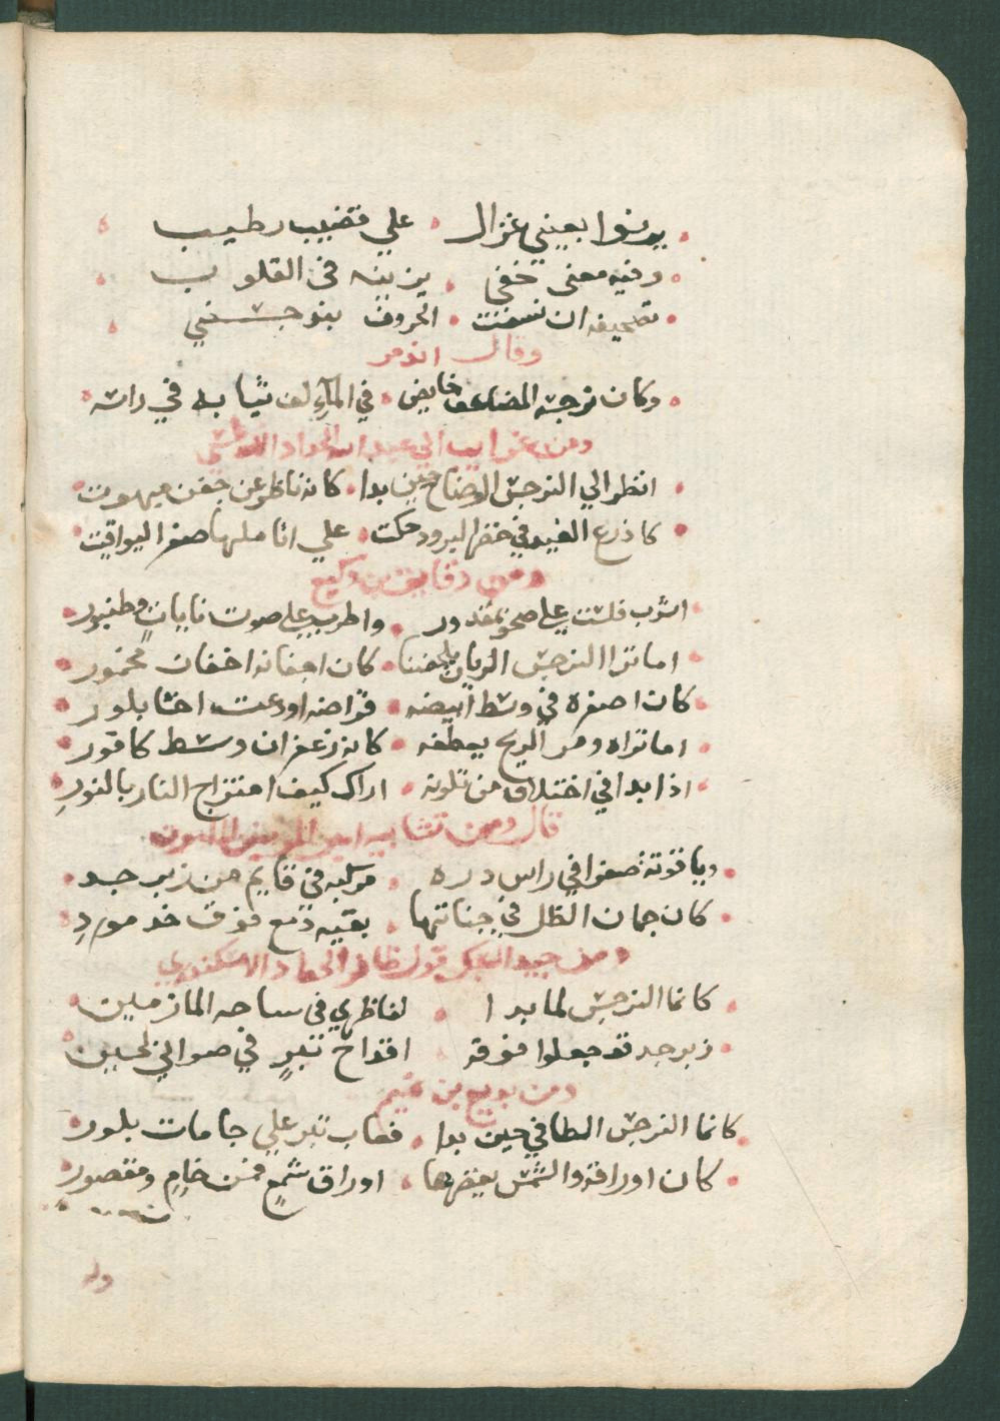 يرنوا بعيني غزال علي قضيب رطيب
وفيه معنى خفي يزينه في القلوب
تصحيفه ان نسقت الحروف بنو
وقال اخر
وكان نرجسه المضاعف خايض في المآء لف ثيابه في راسه
ومن غرايب ابي عبد الله الحداد الاندلسي
انظر الي النرجس الوضاح حين بدا كانه ناظر عن جفن مبهوت
كاذرع الغيد في خضر البرود حكت علي اناملها صفر اليواقيت
ومن دقايق بن وكيع
اشرب فلست علي صحو بمقدور واطرب علي صوت نايات وطنبور
اما ترا النرجس الريان يلحضنا كان اجفانه اجفان مخمور
كان اصفره في وسط ابيضه قراضه اودعت احشا بلور
اما تراه ومر الريح يعطفه كانه زعفران وسط كافور
اذا بدا في اختلاف من تلونه اراك كيف امتزاج النار بالنورِ
قال ومن تشابيه امير المومنين
وياقوتة صفرا في راس دره مركبه في قايم من زبرجد
كان جمان الطل في جنباتها بقيه دمع فوق خد موردِ
ومن جيد السبك قول ظافر الحداد الاسكندري
كانما النرجس لما بدا لناظري في ساحه المازمين
زبرجد قد جعلوا فوقه اقداح تبرٍ في صواني لجين
ومن بديع بن تميم
كانما النرجس الطافي حين بدا قعاب تبر علي جامات بلور
كان اوراقه والشمس تعصرها اوراق شمعٍ فمن خامٍ ومقصور
وله